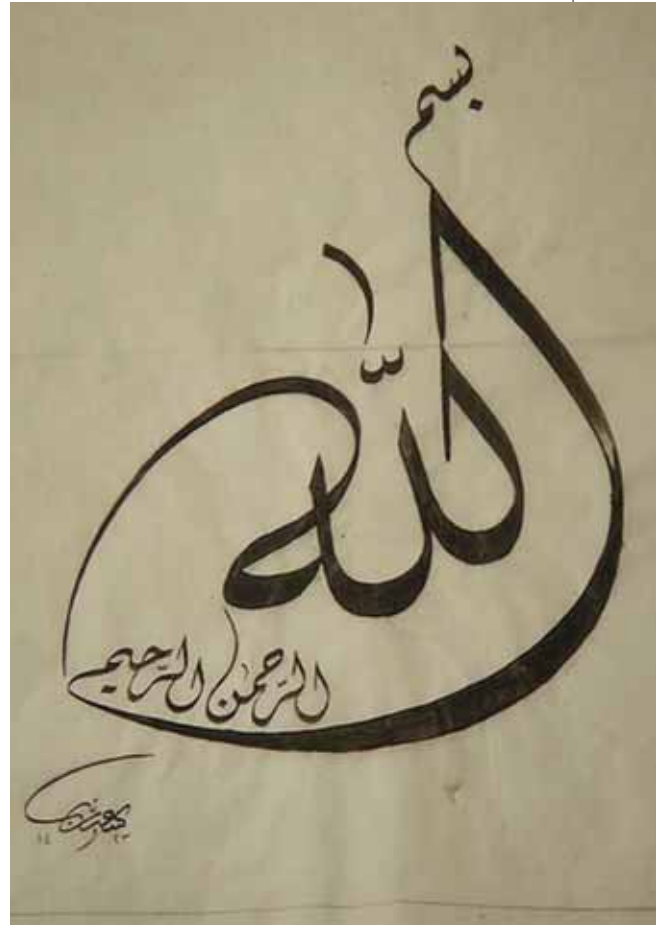 بسم
الله
الرحمن الرحيم
١٤٢٣